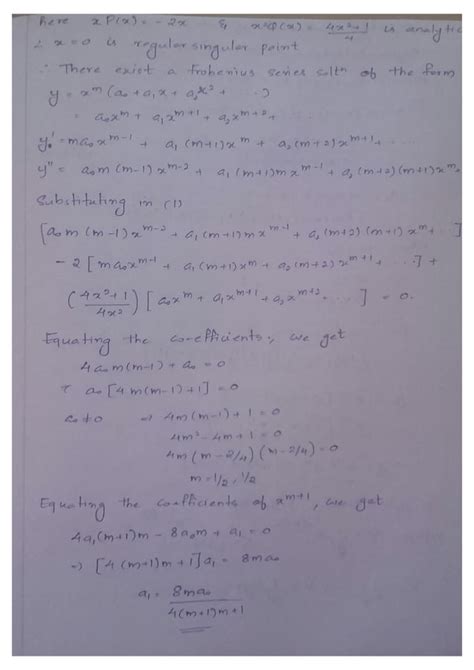 here x P(x) = -2x & x²Q(x) = (4x²+1)/4 is analytic
∴ x=0 is regular singular point
∴ There exist a frobenius series solⁿ of the form
y = x^m (a₀ + a₁x + a₂x² + ...)
= a₀x^m + a₁x^{m+1} + a₂x^{m+2} + ...
y' = ma₀x^{m-1} + a₁(m+1)x^m + a₂(m+2)x^{m+1} + ...
y" = a₀m(m-1)x^{m-2} + a₁(m+1)mx^{m-1} + a₂(m+2)(m+1)x^m
Substituting in (1)
[a₀m(m-1)x^{m-2} + a₁(m+1)mx^{m-1} + a₂(m+2)(m+1)x^m + ...]
- 2[ma₀x^{m-1} + a₁(m+1)x^m + a₂(m+2)x^{m+1} + ...] +
((4x²+1)/4x²) [a₀x^m + a₁x^{m+1} + a₂x^{m+2} ...] = 0.
Equating the co-efficients, we get
4a₀m(m-1) + a₀ = 0
a₀[4m(m-1)+1] = 0
a₀≠0 ⇒ 4m(m-1)+1 = 0
4m²-4m+1 = 0
4m(m-2/4)(m-2/4) = 0
m = 1/2, 1/2
Equating the coefficients of x^{m+1}, we get
4a₁(m+1)m - 8a₀m + a₁ = 0
⇒ [4(m+1)m+1]a₁ = 8ma₀
a₁ = 8ma₀
4(m+1)m+1